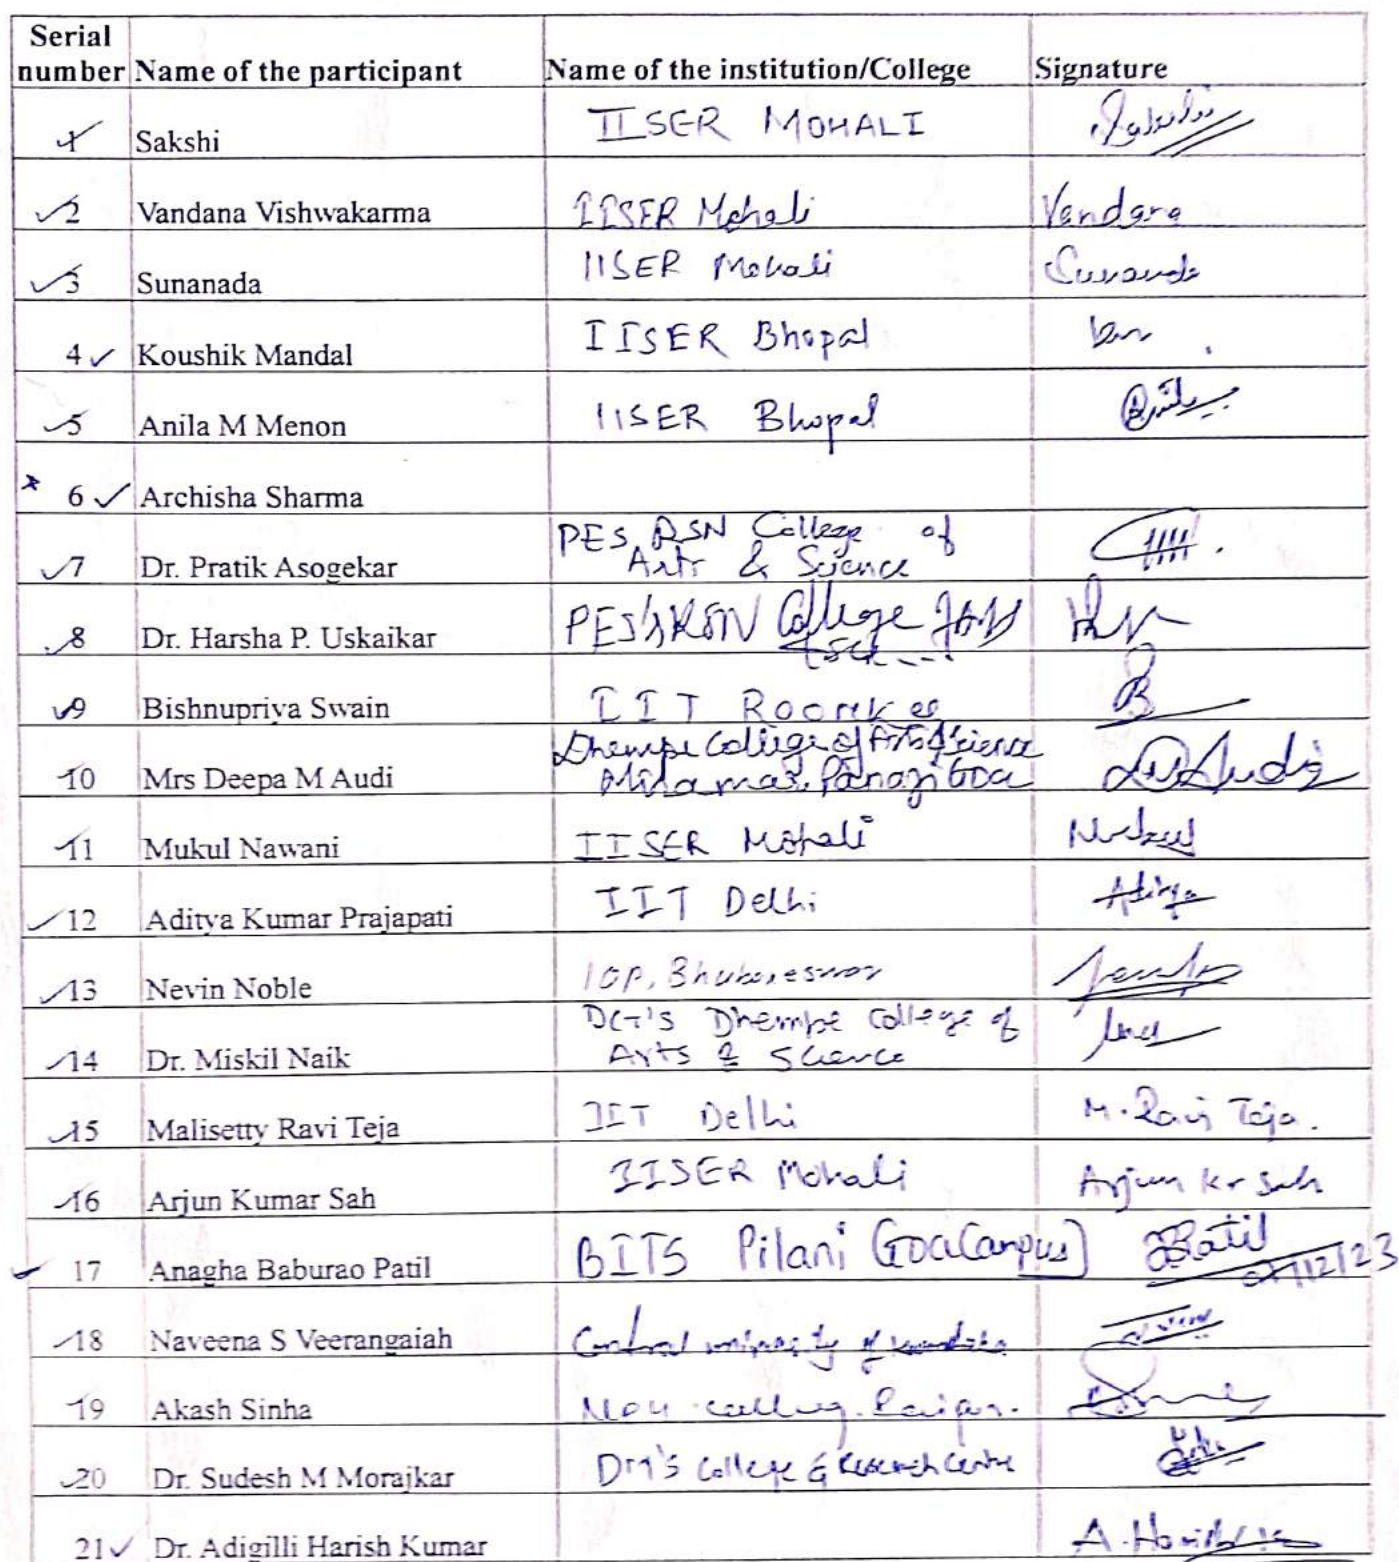 Serial number Name of the participant Name of the institution/College Signature
1 Sakshi IISER MOHALI Sakshi
2 Vandana Vishwakarma IISER Mohali Vandana
3 Sunanada IISER Mohali Sunanda
4 ✓ Koushik Mandal IISER Bhopal
5 Anila M Menon IISER Bhopal
6 ✓ Archisha Sharma
7 Dr. Pratik Asogekar PES RSN College of
Arts & Science
8 Dr. Harsha P. Uskaikar PES's RSN College
9 Bishnupriya Swain IIT Roorkee B
10 Mrs Deepa M Audi Dhempe College of Arts & Science
Miramar, Panaji Goa Audi
11 Mukul Nawani IISER Mohali Mukul
12 Aditya Kumar Prajapati IIT Delhi Aditya
13 Nevin Noble IOP, Bhubaneswar
14 Dr. Miskil Naik DCT'S Dhempe College of
Arts & Science
15 Malisetty Ravi Teja IIT Delhi M. Ravi Teja.
16 Arjun Kumar Sah IISER Mohali Arjun Kr Sah
17 Anagha Baburao Patil BITS Pilani (Goa Campus) Patil
18 Naveena S Veerangaiah Central university of Karnataka
19 Akash Sinha
20 Dr. Sudesh M Morajkar DM'S College & Research Centre
21 ✓ Dr. Adigilli Harish Kumar